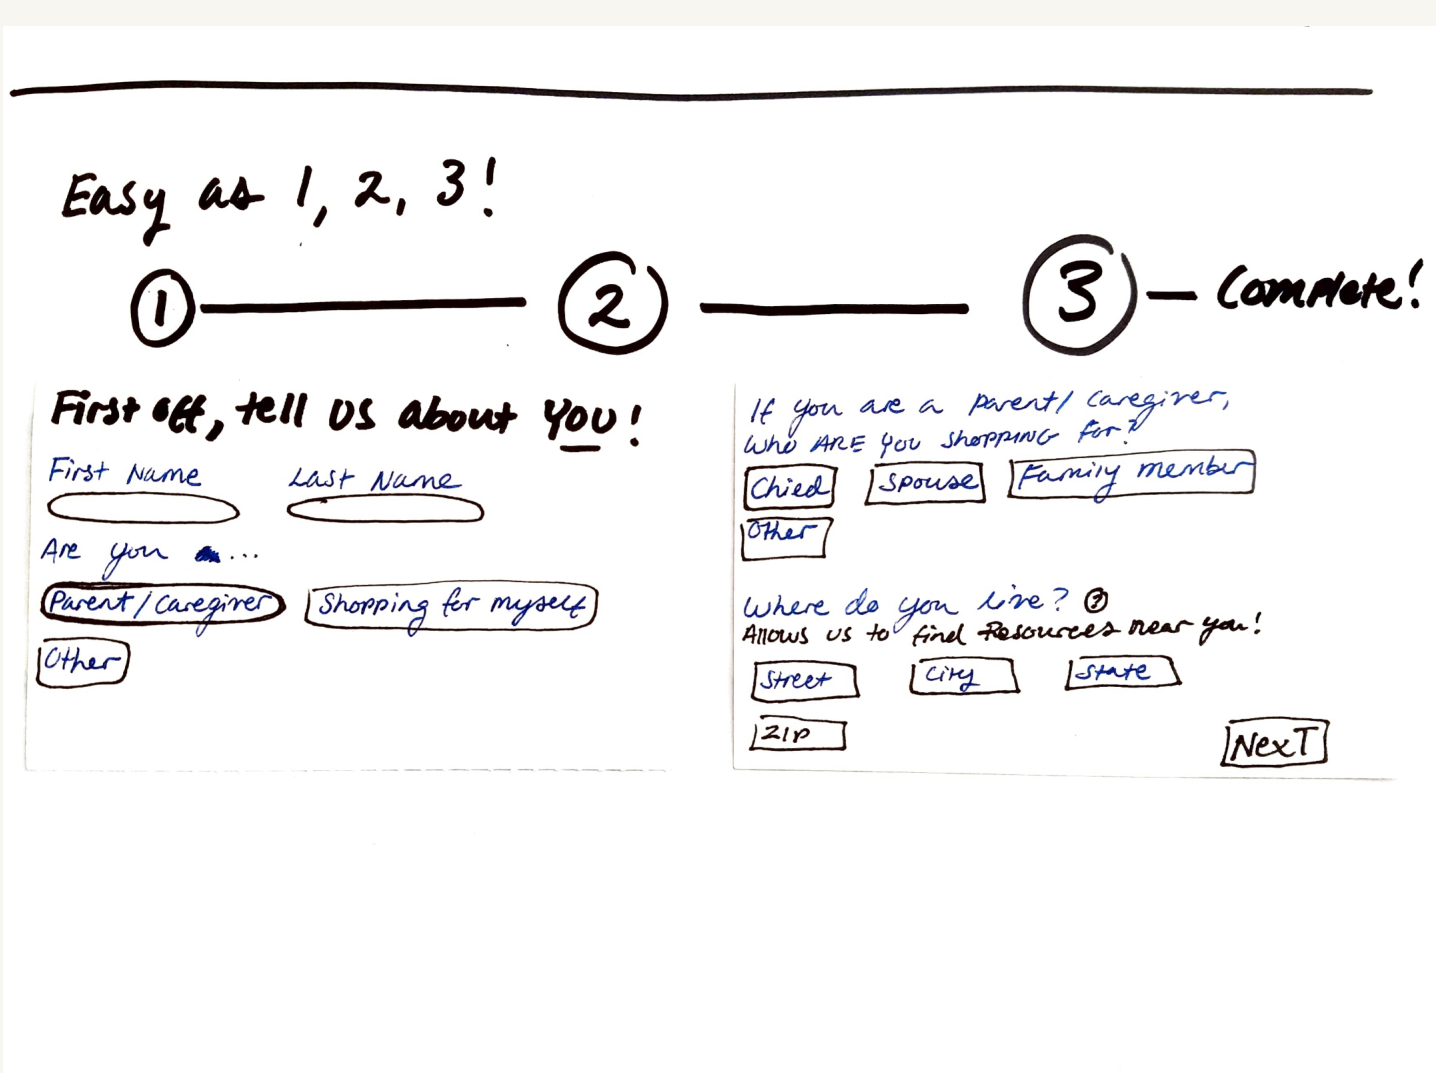 Easy as 1, 2, 3!
1 2 3 Complete!
First off, tell us about you!
First Name Last Name
Are you ...
Parent/Caregiver Shopping for myself
Other
If you are a parent/caregiver,
Who ARE you shopping for?
Child Spouse Family member
Other
Where do you live? ?
Allows us to find Resources near you!
Street City State
Zip
NexT